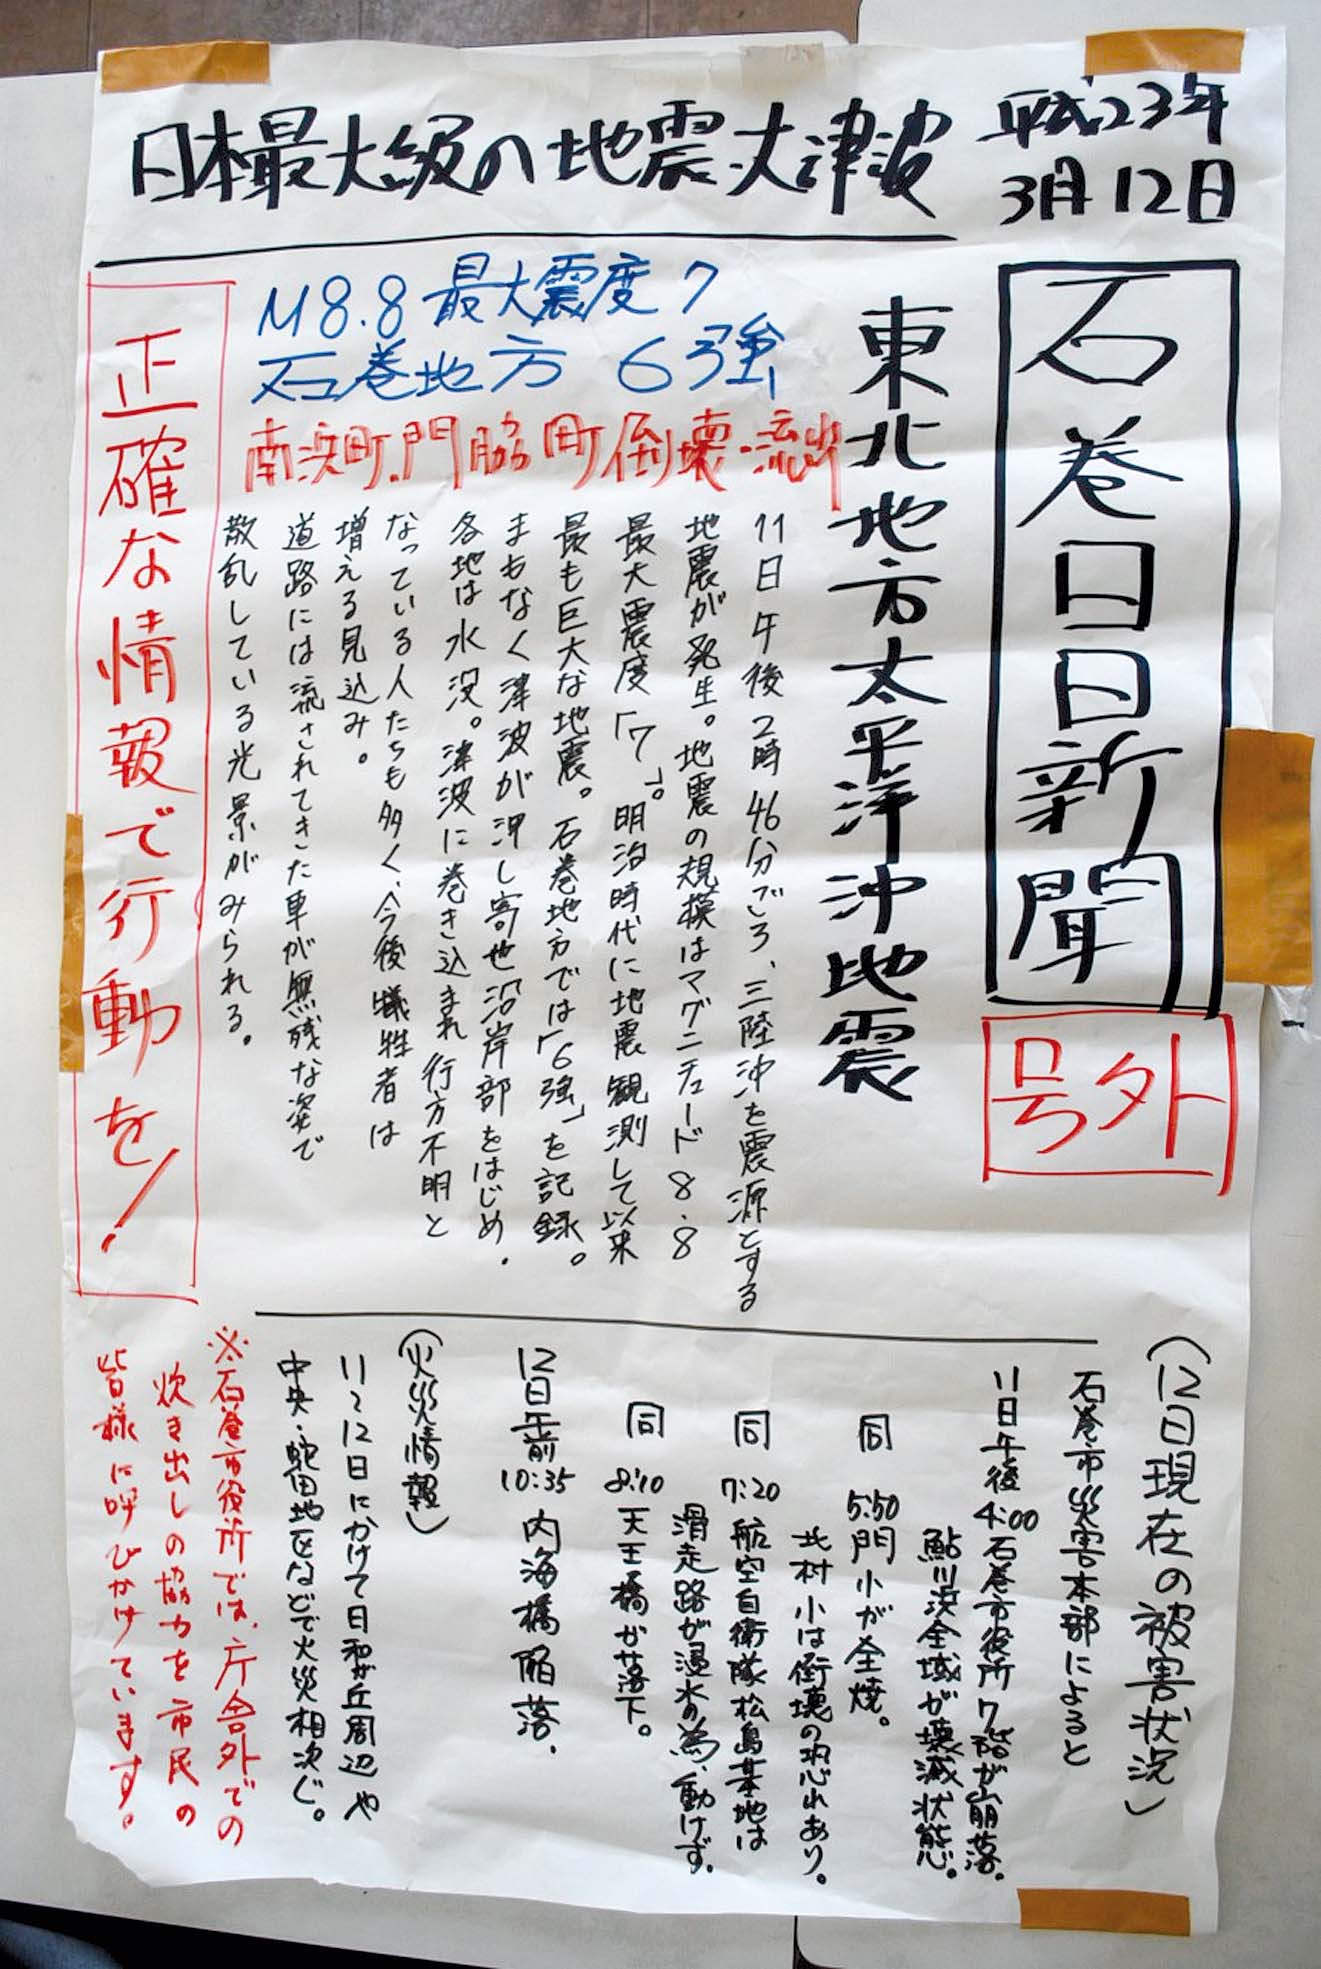 日本最大級の地震・大津波
平成23年
3月12日
石巻日日新聞
号外
東北地方太平洋沖地震
M8.8 最大震度7
石巻地方 6強
南浜町、門脇町倒壊・流出
11日午後2時46分ごろ、三陸沖を震源とする
地震が発生。地震の規模はマグニチュード8.8
最大震度「7」。明治時代に地震観測して以来
最も巨大な地震。石巻地方では「6強」を記録。
まもなく津波が押し寄せ沿岸部をはじめ、
各地は水没。津波に巻き込まれ行方不明と
なっている人たちも多く、今後犠牲者は
増える見込み。
道路には流されてきた車が無残な姿で
散乱している光景がみられる。
正確な情報で行動を!
(12日現在の被害状況)
石巻市災害本部によると
11日午後4:00 石巻市役所7階が崩落。
鮎川浜全域が壊滅状態。
同 5:50 門小が全焼。
北村小は倒壊の恐れあり。
同 7:20 航空自衛隊松島基地は
滑走路が浸水の為、動けず。
同 8:10 天王橋が落下。
12日午前10:35 内海橋陥落、
(火災情報)
11〜12日にかけて日和が丘周辺や
中央・蛇田地区などで火災相次ぐ。
※石巻市役所では、庁舎外での
炊き出しの協力を市民の
皆様に呼びかけています。